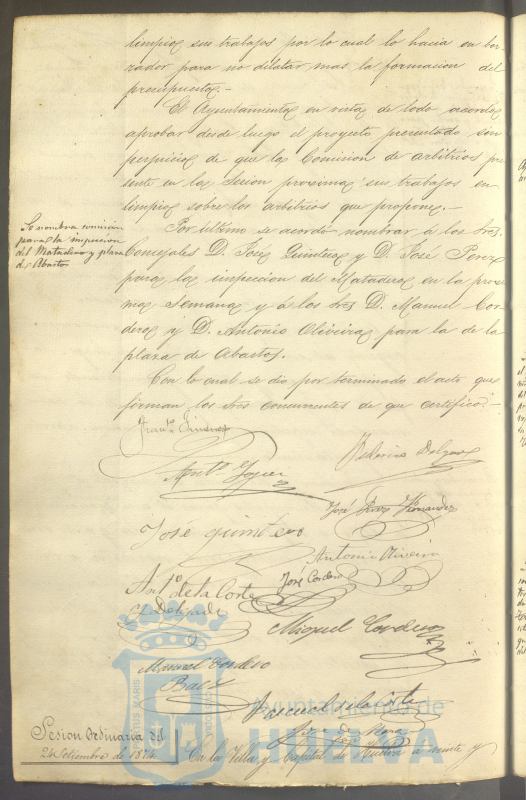 limpios sus trabajos por lo cual lo hacia en bor-
rador para no dilatar mas la formacion del
presupuesto.-
El Ayuntamiento en vista de todo acordó
aprobar desde luego el proyecto presentado sin
perjuicio de que la Comision de arbitrios pre
sente en la Sesion proxima sus trabajos en
limpio sobre los arbitrios que propone.-
Se nombra comision
para la inspeccion
del Matadero y plaza
de Abastos
Por último se acordó nombrar á los Sres.
Concejales D. José Quintero y D. José Perez
para la inspeccion del Matadero en la proxi
ma Semana y á los Sres D. Manuel Cor
dero y D. Antonio Oliveira para la de la
plaza de Abastos.
Con lo cual se dio por terminado el acto que
firman los Sres concurrentes de que certifico.-
Fran.co Jimenez
Federico Delgado
Ant.o
José Perez Hernandez
José Quintero
Antonio Oliveira
Ant.o de la Corte
José Cordero
y Delgado
Miguel Cordero
Manuel Cordero
Manuel de la Corte
PORTUS MARIS
CUSTODIA
Ayuntamiento de
HUELVA
Sesion Ordinaria del
24 Setiembre de 1874.
En la Villa y Capital de Huelva á veinte y